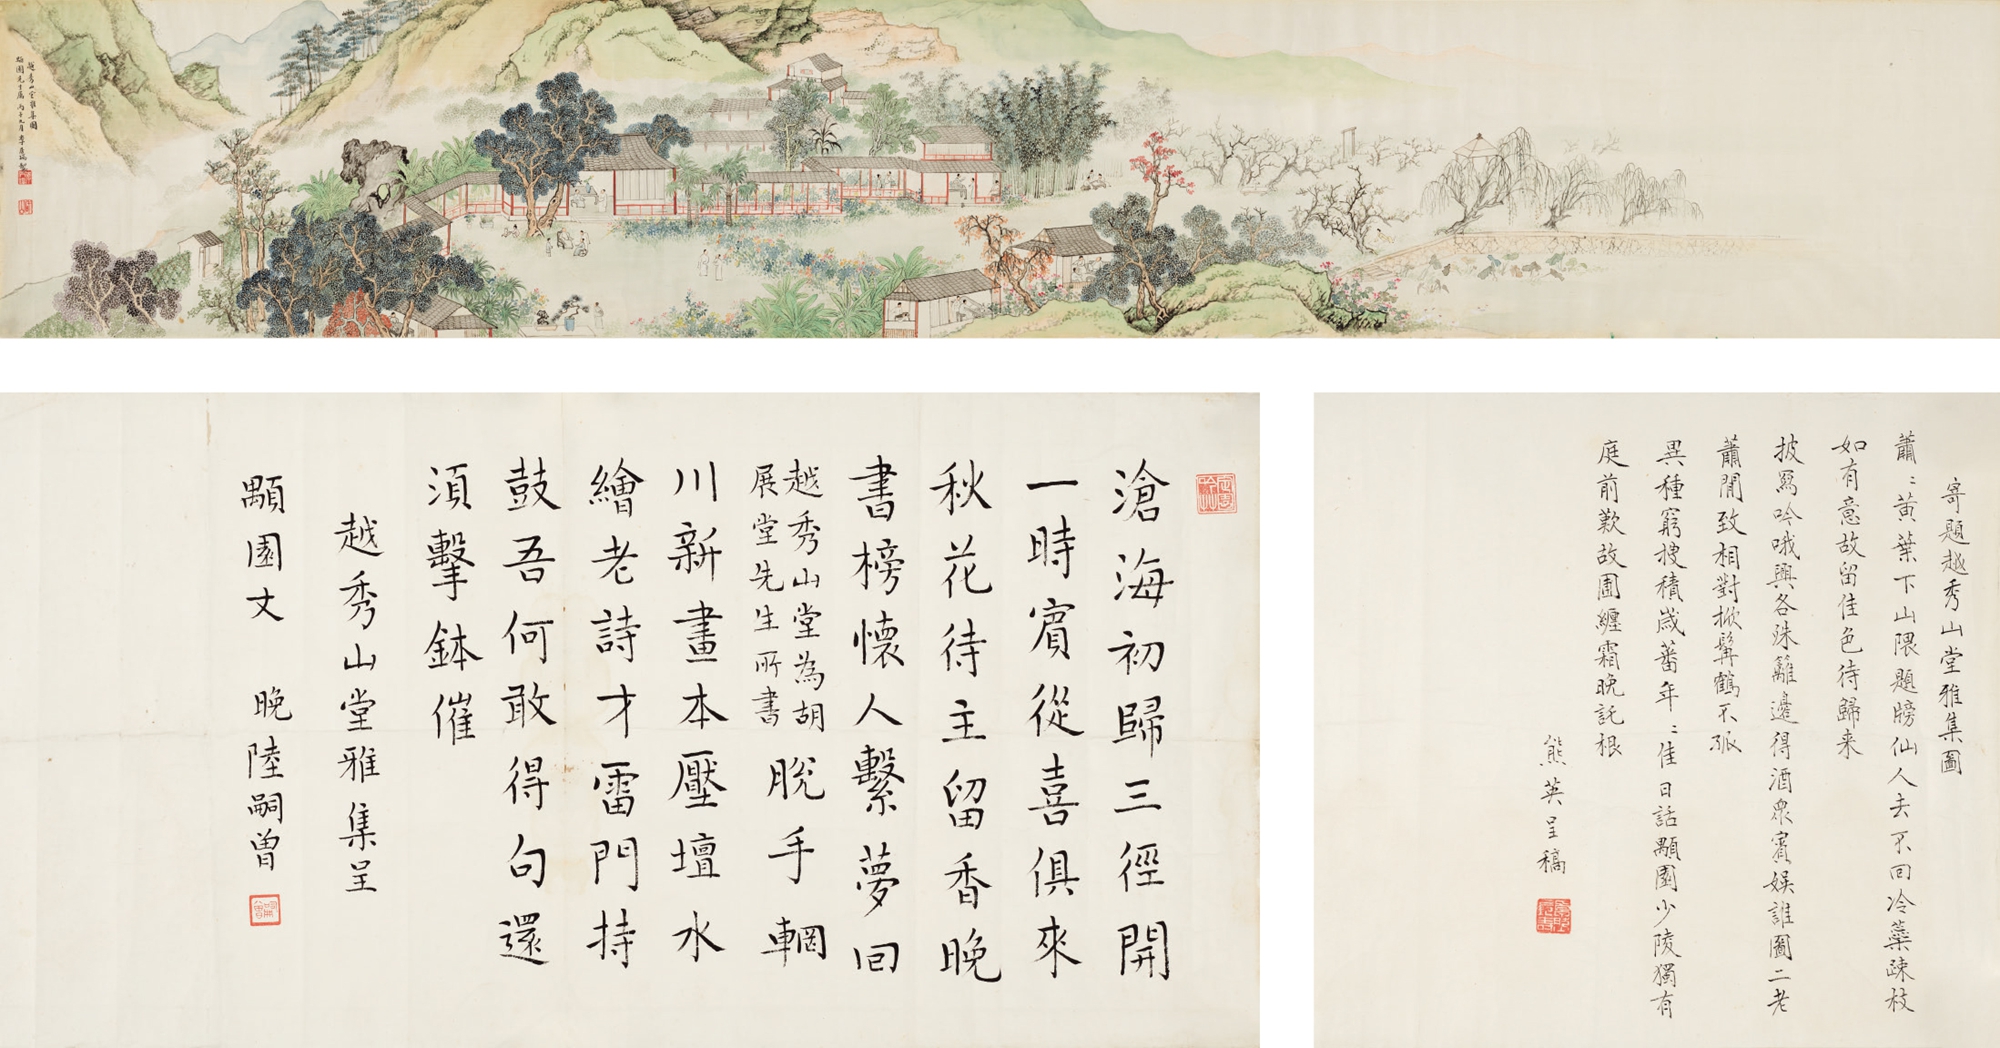 越秀山堂雅集圖
園先生屬 丙子九月
滄海初歸三徑開
一時賓從喜俱來
秋花待主留香晚
書榜懷人繫夢回
越秀山堂為胡
展堂先生所書
脫手輞
川新畫本壓壇水
繪老詩才雷門持
鼓吾何敢得句還
須擊鉢催
越秀山堂雅集呈
顒園丈 晚陸嗣曾
寄題越秀山堂雅集圖
蕭〻黃葉下山隈題牓仙人去不回冷蘂疎枝
如有意故留佳色待歸来
披冩吟哦興各殊籬邊得酒衆賓娱誰圖二老
蕭閒致相對掀髯鶴不孤
異種窮搜積歲蕃年〻佳日話顒園少陵獨有
庭前歎故圃纏霜晚託根
熊英呈稿